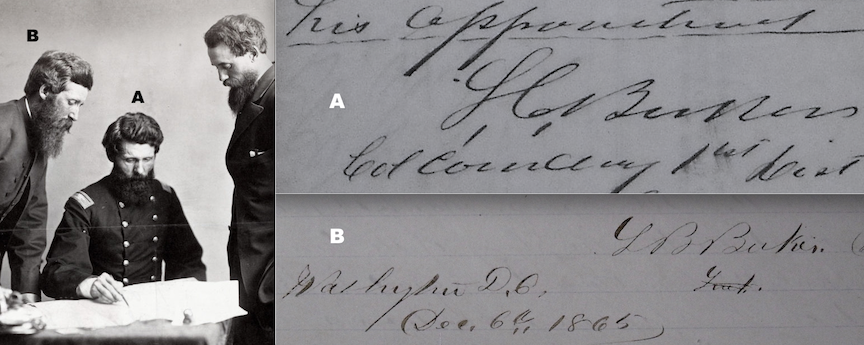 B
A
A
his appointment
L C Baker
Col Comding 1st Dist
B
L B Baker
Washington D.C.
Dec. 6th, 1865